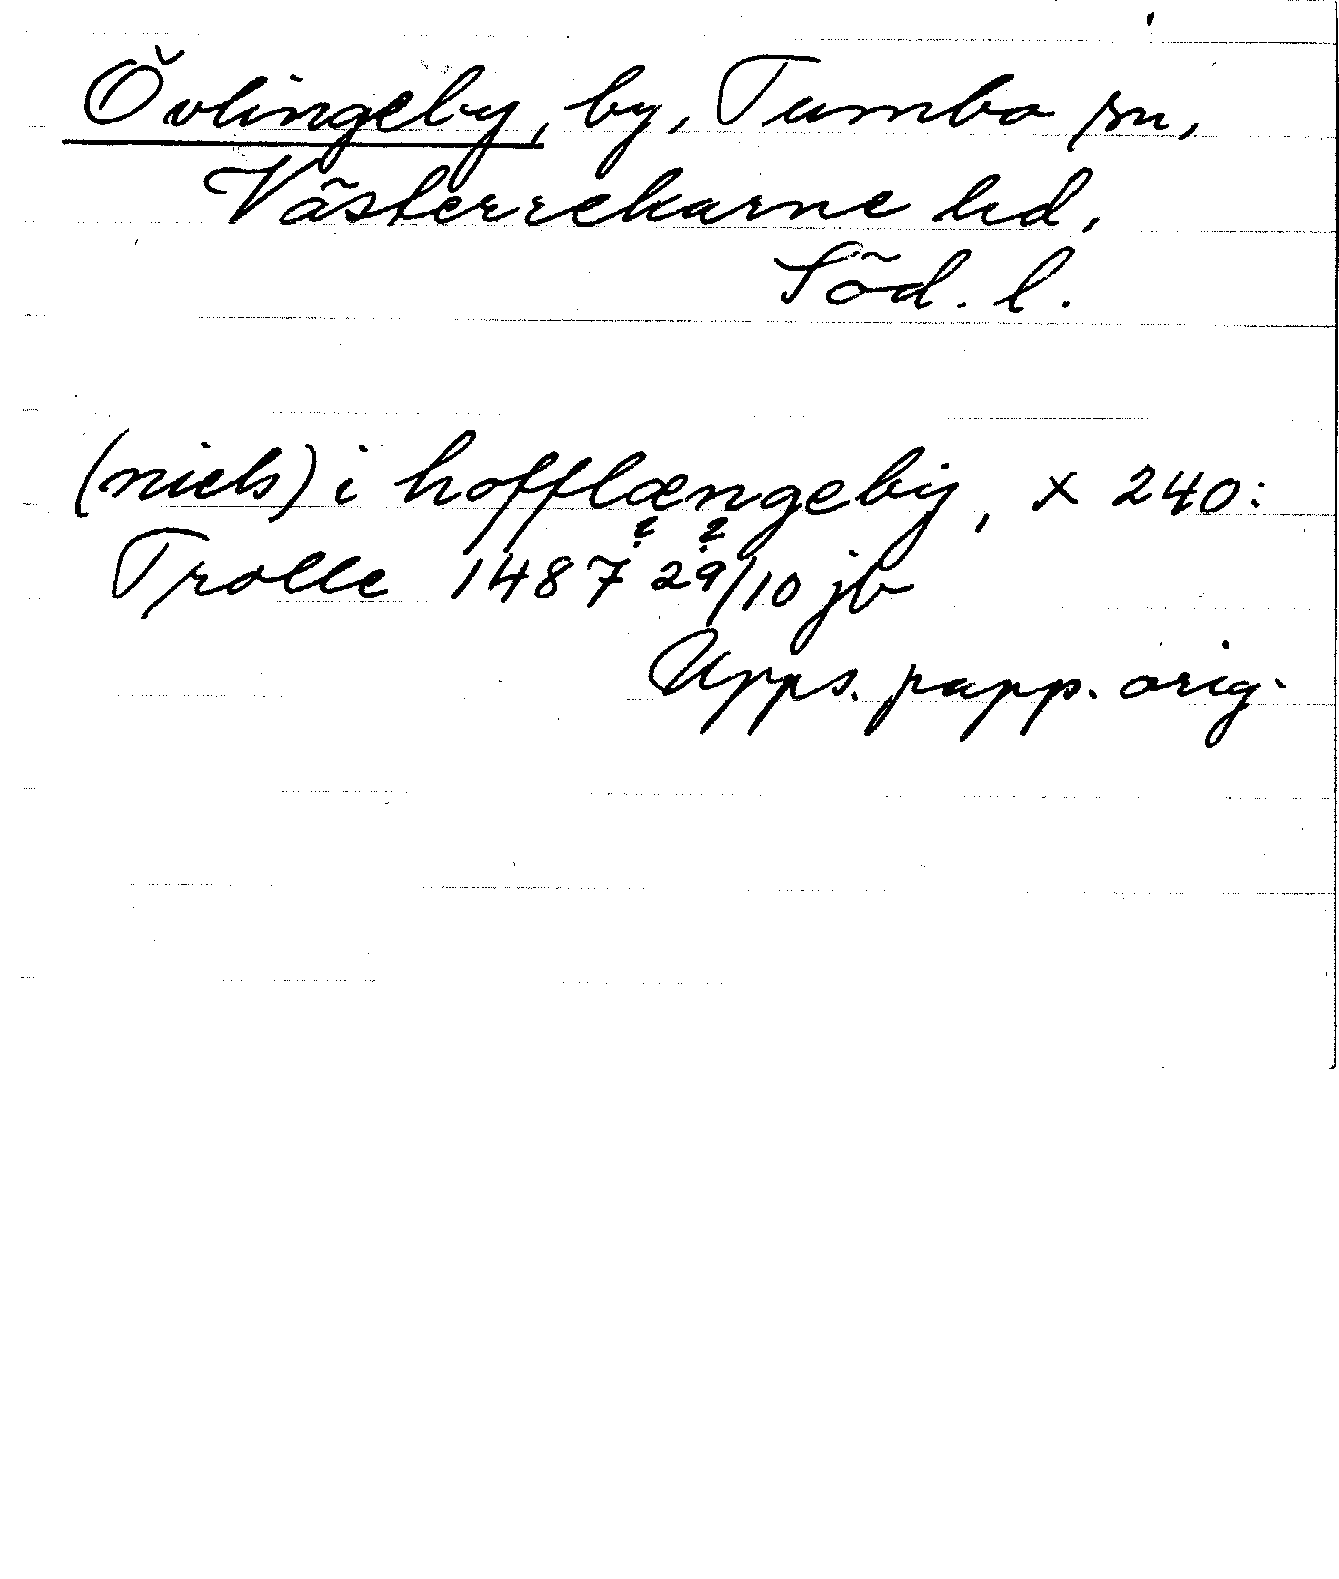 Övlingeby, by, Tumbo sn,
Västerrekarne hd,
Söd. l.
(niels) i hofflængebÿ, x 240:
? ?
Trolle 1487 29/10 jb
Upps. papp. orig.